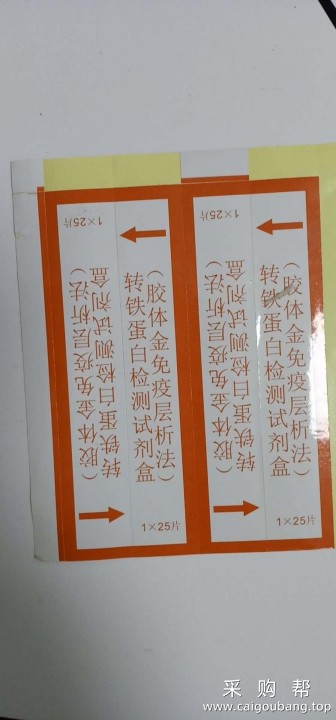 转铁蛋白检测试剂盒
（胶体金免疫层析法）
1×25片
转铁蛋白检测试剂盒
（胶体金免疫层析法）
1×25片
转铁蛋白检测试剂盒
（胶体金免疫层析法）
1×25片
转铁蛋白检测试剂盒
（胶体金免疫层析法）
1×25片
采购帮
www.caigoubang.top